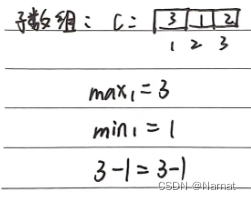 子数组: C: 3 1 2
1 2 3
max₁ = 3
min₁ = 1
3-1=3-1
CSDN @Narnat